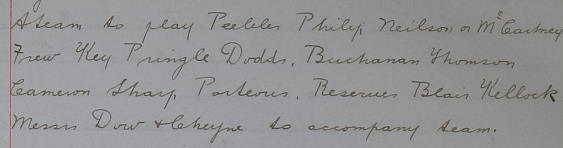 A team to play Peebles Philip, Neilson or McCartney
Frew Key Pringle Dodds, Buchanan Thomson
Cameron Sharp, Porteous, Reserves Blair Kellock
Messrs Dow & Cheyne to accompany team.